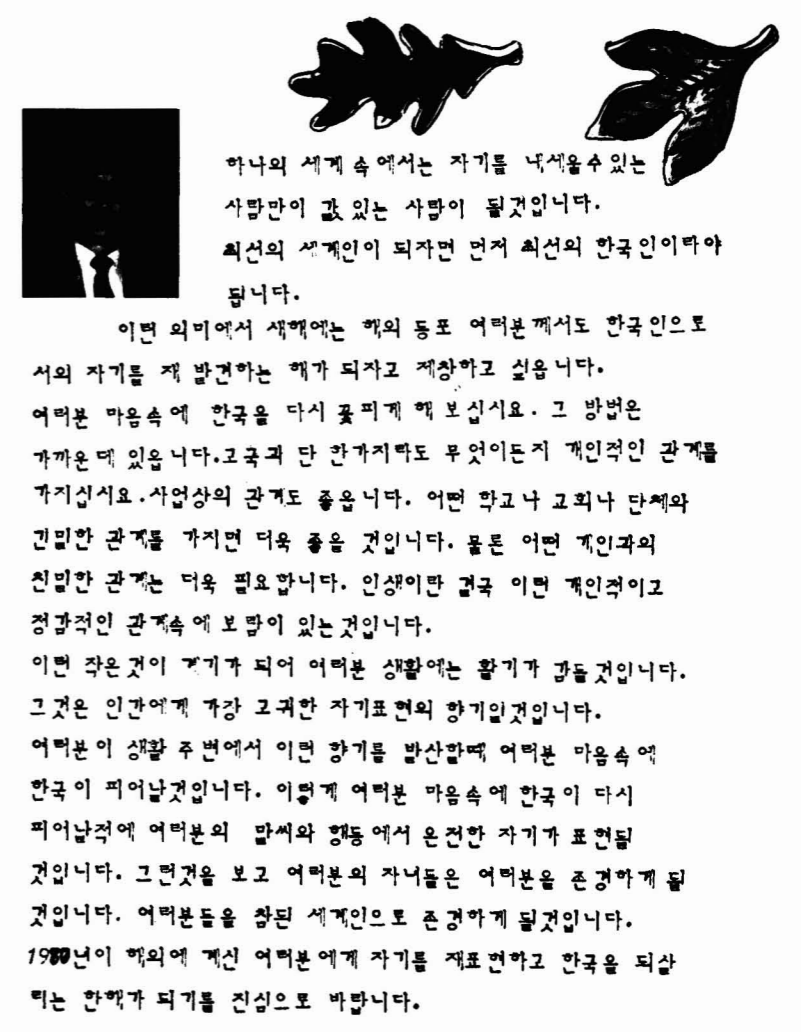 하나의 세계 속에서는 자기를 내세울수 있는
사람만이 값 있는 사람이 될것입니다.
최선의 세계인이 되자면 먼저 최선의 한국인이라야
됩니다.
이런 의미에서 새해에는 해외 동포 여러분께서도 한국인으로
서의 자기를 재 발견하는 해가 되자고 제창하고 싶읍니다.
여러분 마음속에 한국을 다시 꽃피게 해 보십시요. 그 방법은
가까운데 있읍니다. 고국과 단 한가지라도 무엇이든지 개인적인 관계를
가지십시요. 사업상의 관계도 좋읍니다. 어떤 학교나 교회나 단체와
긴밀한 관계를 가지면 더욱 좋을 것입니다. 물론 어떤 개인과의
친밀한 관계는 더욱 필요합니다. 인생이란 결국 이런 개인적이고
정감적인 관계속에 보람이 있는것입니다.
이런 작은것이 계기가 되어 여러분 생활에는 활기가 감돌것입니다.
그것은 인간에게 가장 고귀한 자기표현의 향기일것입니다.
여러분이 생활 주변에서 이런 향기를 발산할때 여러분 마음속에
한국이 피어날것입니다. 이렇게 여러분 마음속에 한국이 다시
피어날적에 여러분의 말씨와 행동에서 온전한 자기가 표현될
것입니다. 그런것을 보고 여러분의 자녀들은 여러분을 존경하게 될
것입니다. 여러분들을 참된 세계인으로 존경하게 될것입니다.
1980년이 해외에 계신 여러분에게 자기를 재표현하고 한국을 되살
리는 한해가 되기를 진심으로 바랍니다.